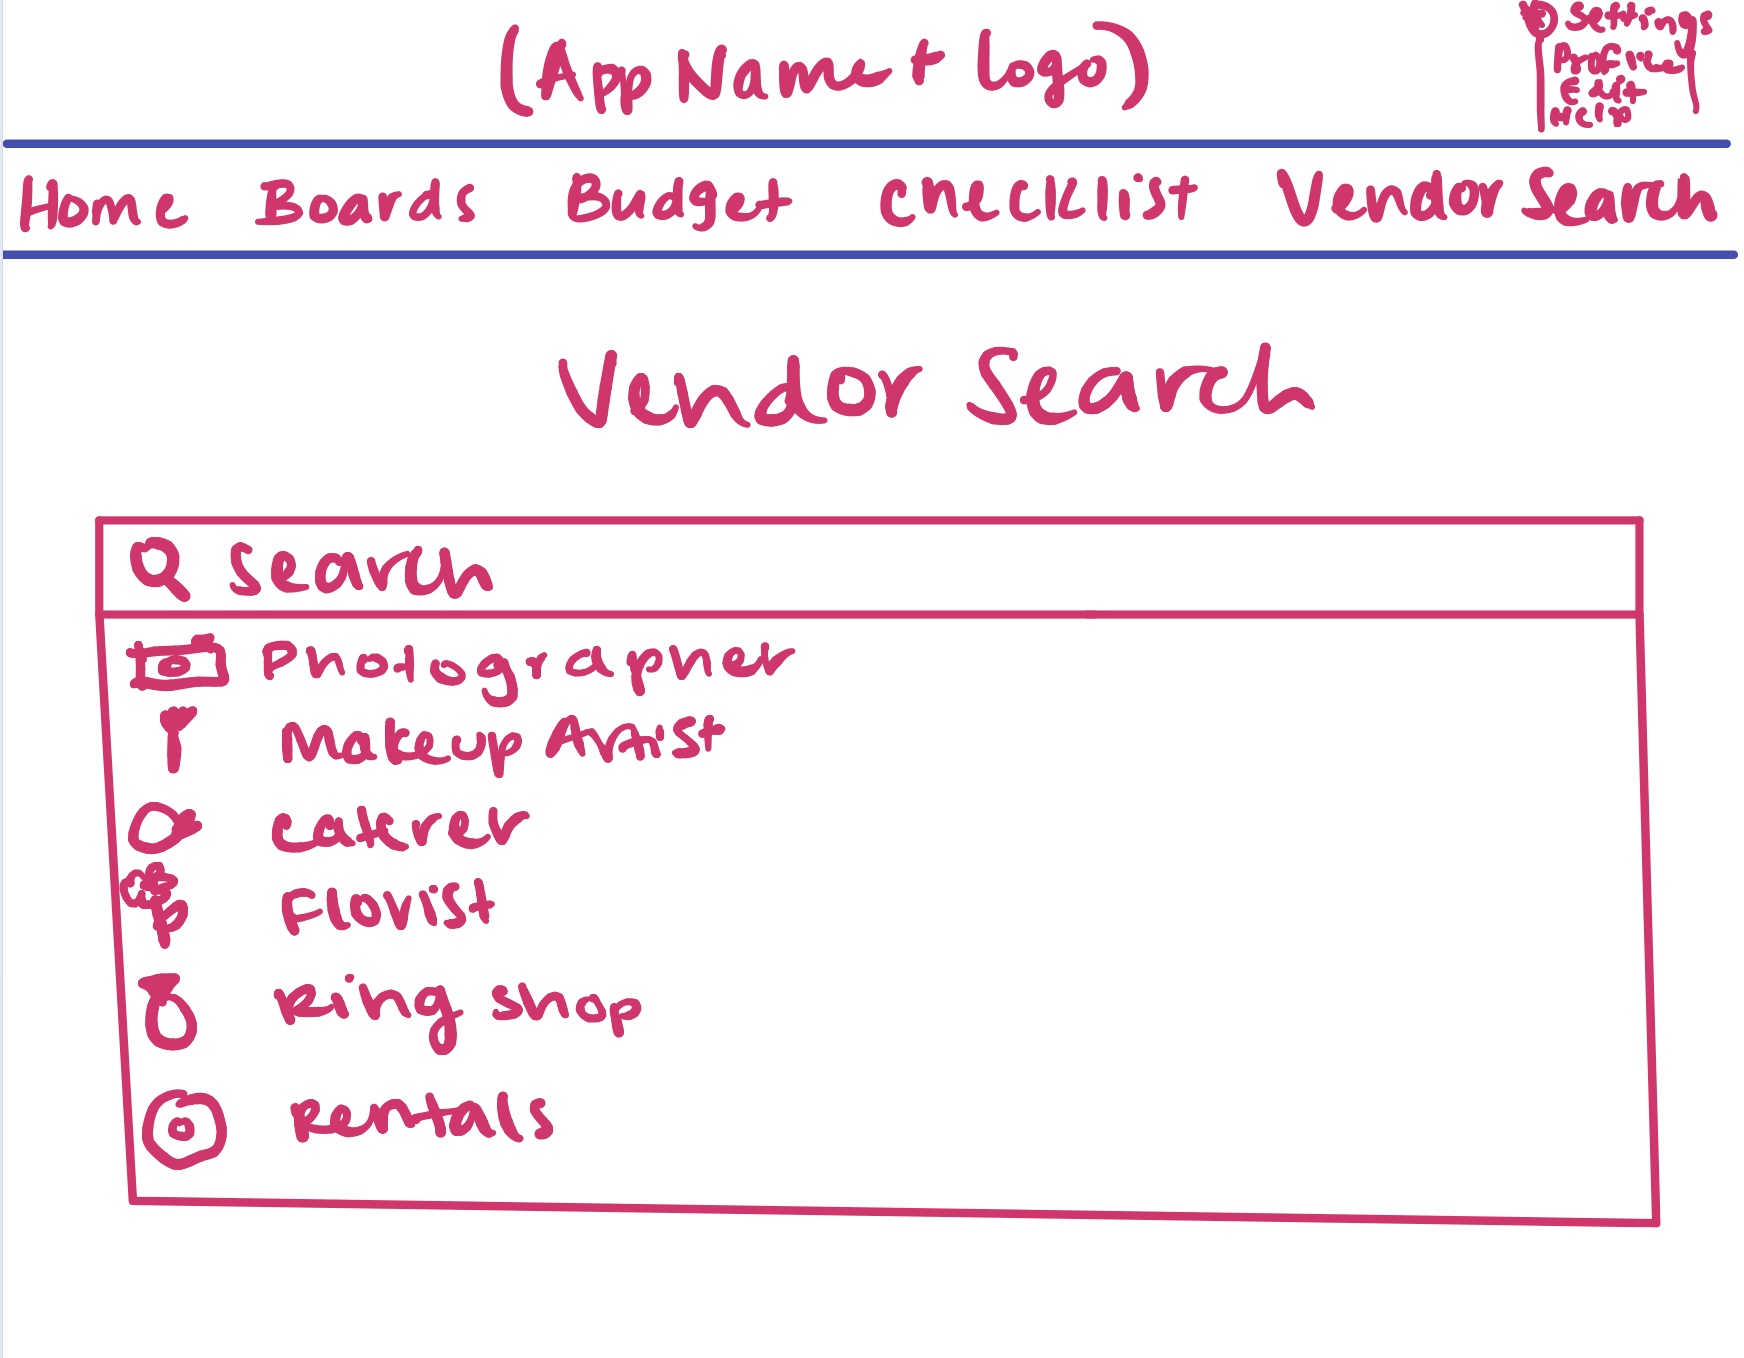 (App Name + logo)
Settings
Profile
Edit
Help
Home Boards Budget Checklist Vendor Search
Vendor Search
Search
Photographer
Makeup Artist
Caterer
Florist
Ring shop
Rentals